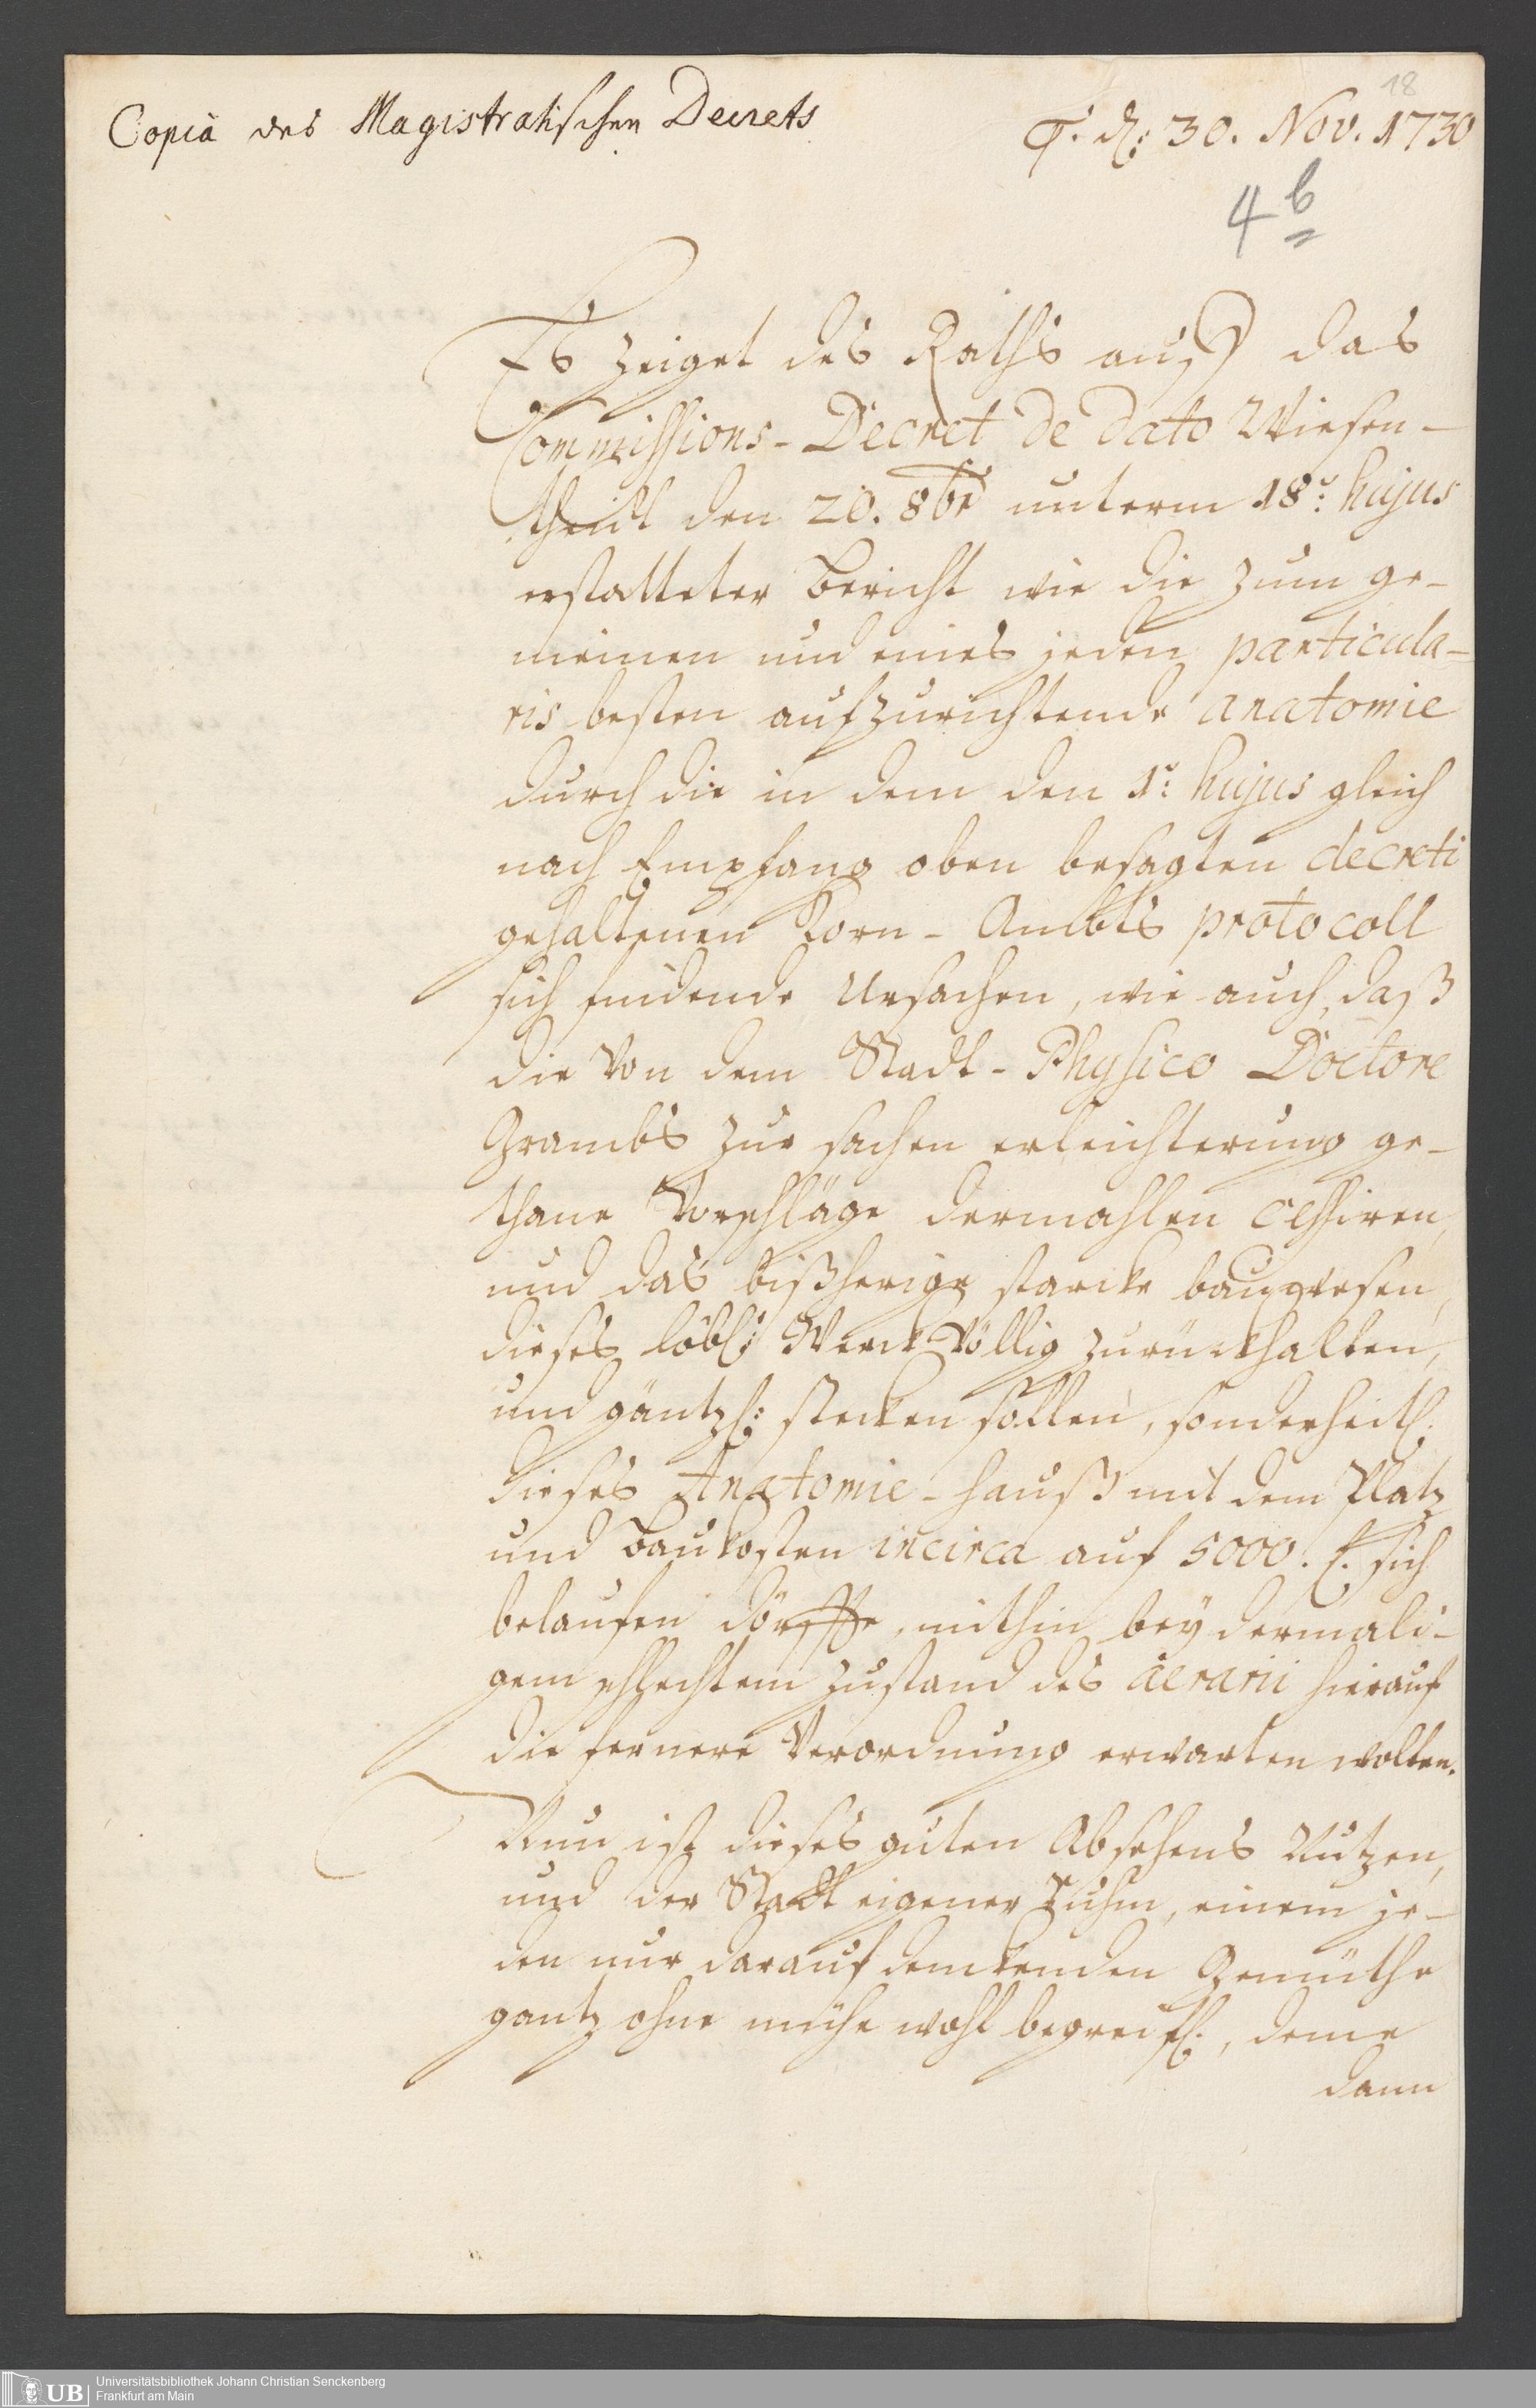 18
Copia des Magistratischen Decrets
d: 30. Nov. 1730
4 b
Es zeiget des Raths auff das
Commissions-Decret de dato Wiesen-
theidt den 20. 8br unterm 18: hujus
erstatteter Bericht wie die zum ge-
meinen und eines jeden particula-
ris besten aufzurichtende anatomie
durch die in dem den 1: hujus gleich
nach Empfang oben besagten decreti
gehaltenen Korn-Ambts protocoll
sich findende Ursachen, wie auch, daß
die von dem Stadt-Physico Doctore
Grambs zur sachen erleichterung ge-
thane Vorschläge dermahlen cessiren,
und das bißherige starcke bauwesen,
dieses löbl: Werck völlig zurückhalten,
und gäntzl: stecken sollen, sonderheitl.
dieses Anatomie-hauß mit dem Platz
und Baukosten in circa auf 5000. f. sich
belaufen dörffte, mithin bey dermali-
gem schlechtem zustand des aerarii hierauf
die fernere Verordnung erwarten wolten.
Nun ist dieses guten Absehens Nutzen,
und der Stadt eigener Ruhm, einem je-
den nur darauf denckenden Gemüthe
gantz ohne mühe wohl begreifl., deme
dann
UB
Universitätsbibliothek Johann Christian Senckenberg
Frankfurt am Main